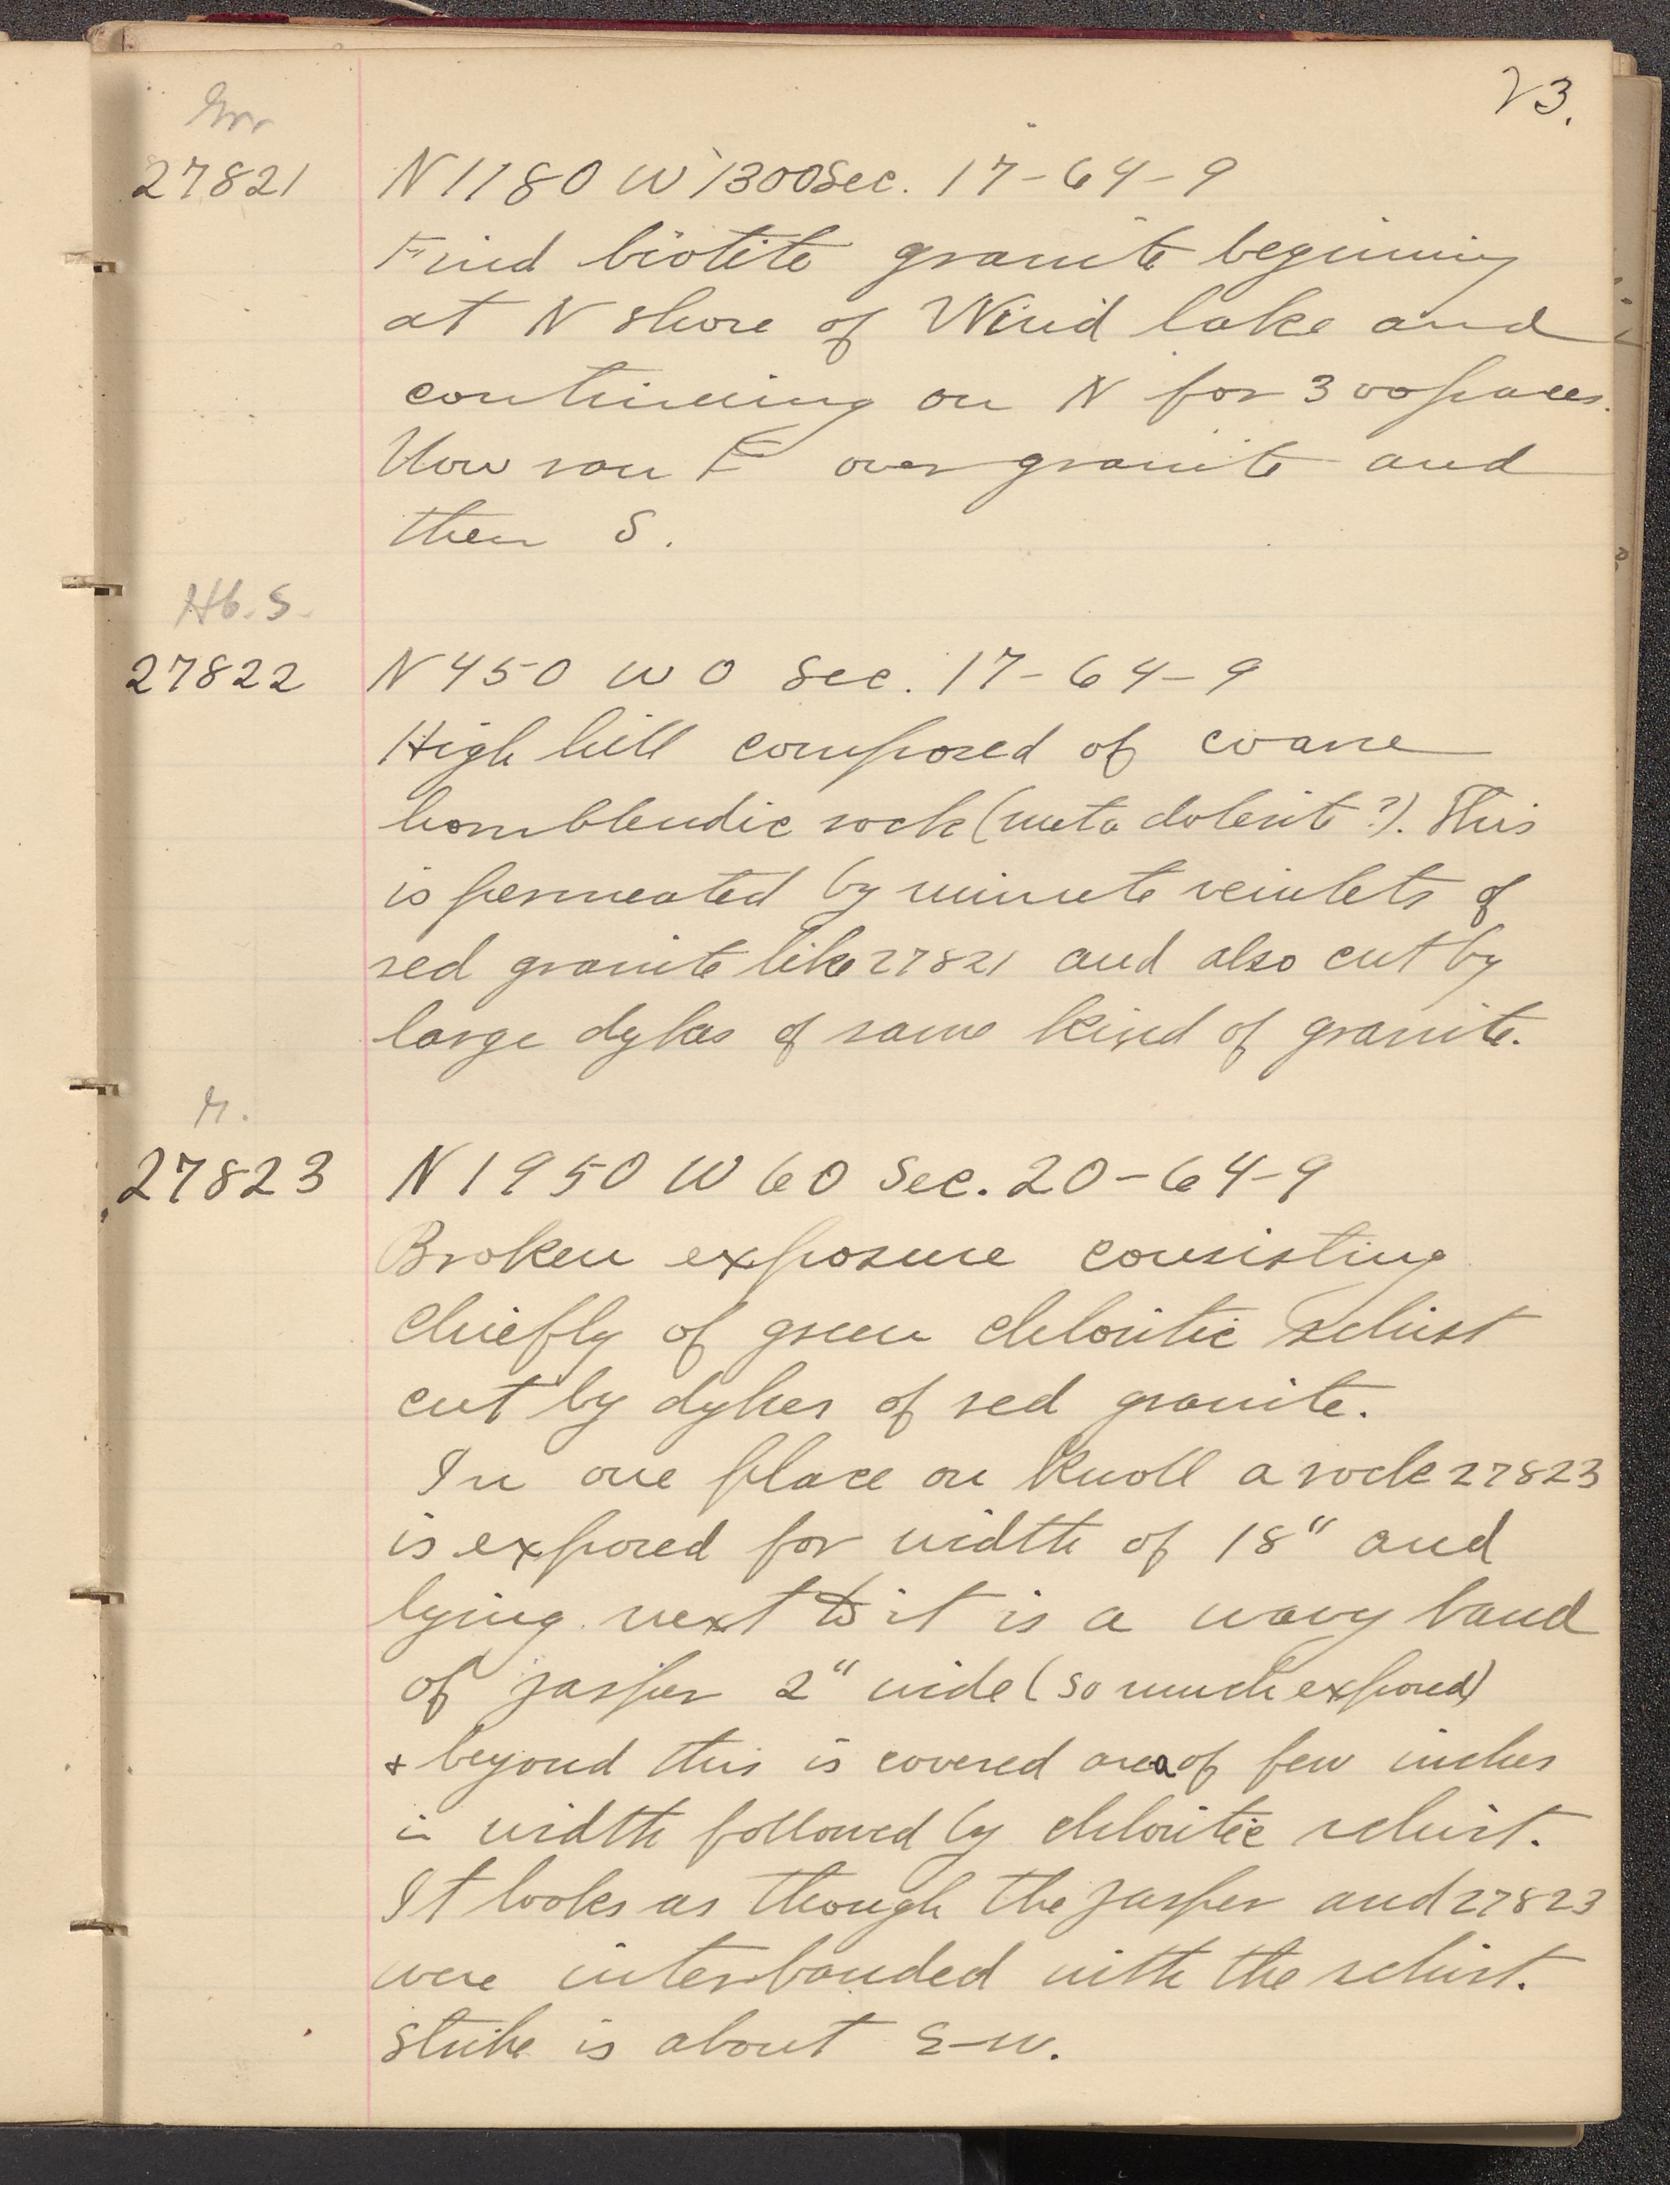 23.
27821 N 1180 W 1300 Sec. 17-64-9
Find biotite granite beginning
at N shore of Wind lake and
continuing on N for 300 paces.
Now ran E over granite and
then S.
Hb. S.
27822 N 450 W 0 Sec. 17-64-9
High hill composed of coarse
hornblendic rock (meta dolerite?). This
is permeated by minute veinlets of
red granite like 27821 and also cut by
large dykes of same kind of granite.
27823 N 1950 W 60 Sec. 20-64-9
Broken exposure consisting
chiefly of green chloritic schist
cut by dykes of red granite.
In one place on knoll a rock 27823
is exposed for width of 18" and
lying next to it is a wavy band
of jasper 2" wide (so much exposed)
& beyond this is covered area of few inches
in width followed by chloritic schist.
It looks as though the jasper and 27823
were interbanded with the schist.
Strike is about E-W.